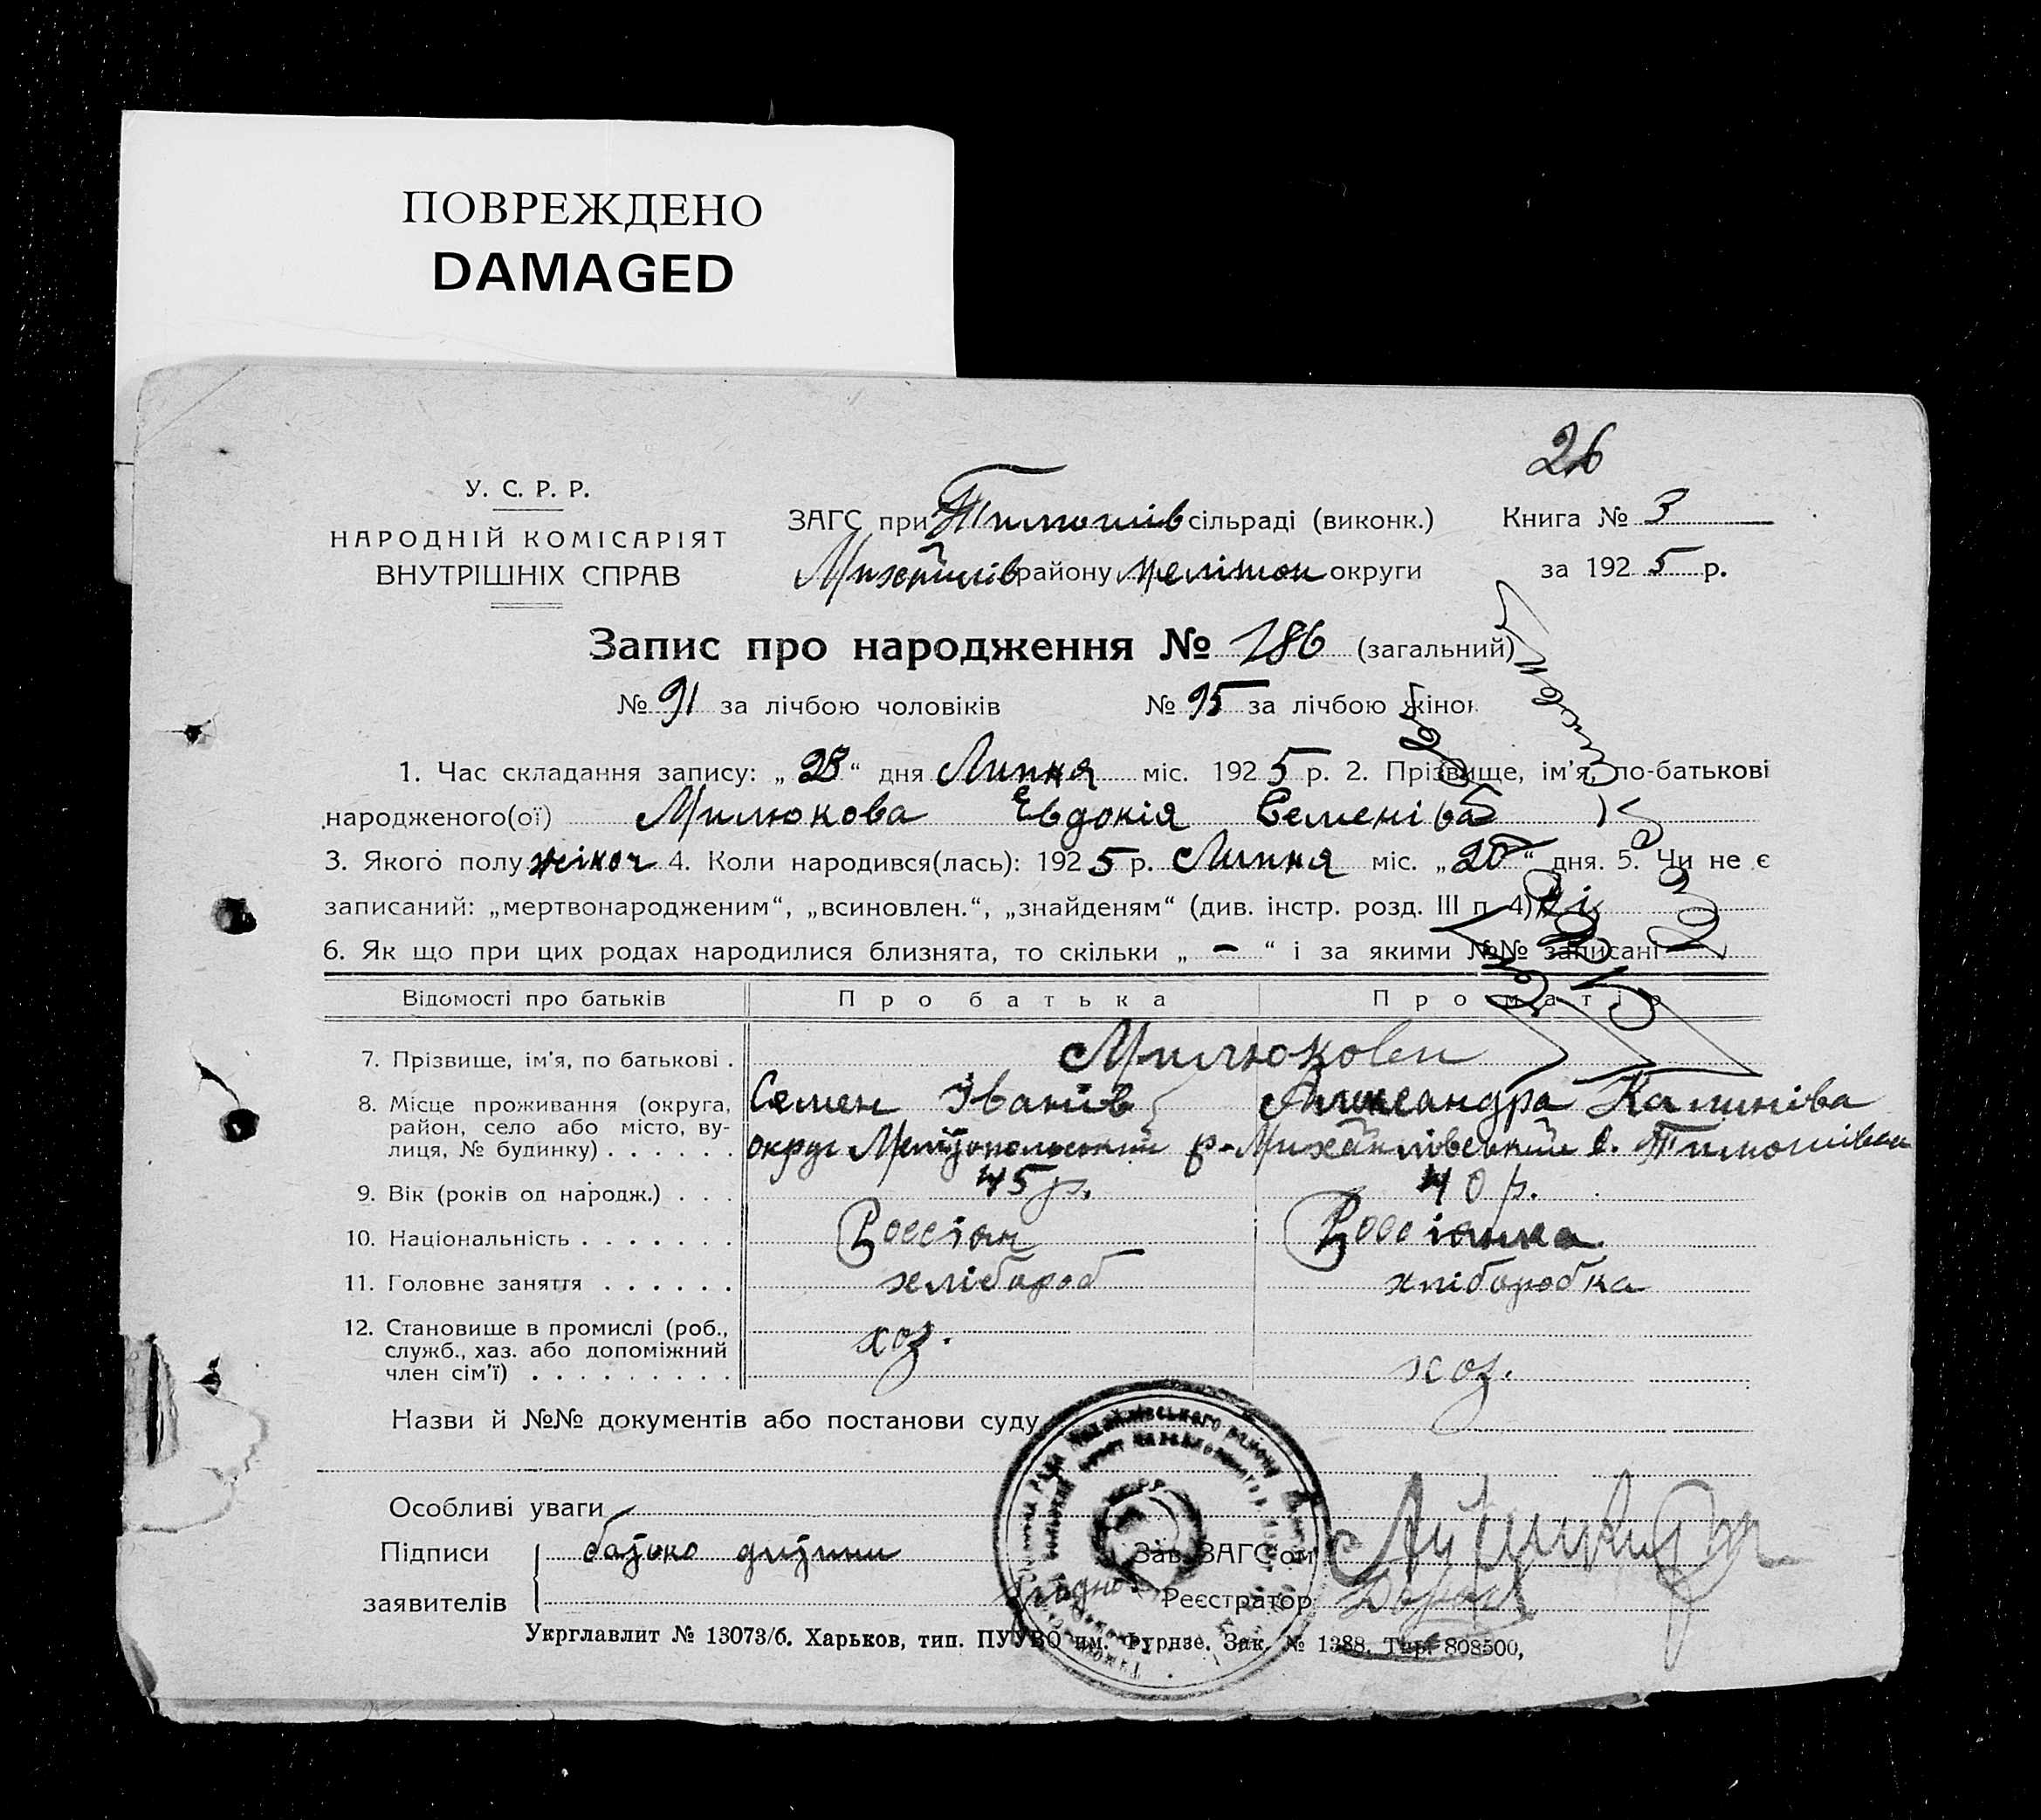 ПОВРЕЖДЕНО
DAMAGED
26
У. С. Р. Р.
НАРОДНІЙ КОМІСАРІЯТ
ВНУТРІШНІХ СПРАВ
ЗАГС при Тимошів сільраді (виконк.)
Михайлів району Мелітоп округи
Книга № 3
за 1925 р.
Запис про народження № 186 (загальний)
№ 91 за лічбою чоловіків № 95 за лічбою жінок
1. Час складання запису: „23“ дня Липня міс. 1925 р. 2. Прізвище, ім'я, по-батькові
народженого(ої) Милюкова Евдокія Семенівa
3. Якого полу жіноч 4. Коли народився(лась): 1925 р. Липня міс. „20“ дня. 5. Чи не є
записаний: „мертвонародженим“, „всиновлен.“, „знайденям“ (див. інстр. розд. III п. 4) Ні
6. Як що при цих родах народилися близнята, то скільки „ - “ і за якими №№ записані -
Відомості про батьків Про батька Про матір
7. Прізвище, ім'я, по батькові . Милюкови
8. Місце проживання (округа, Семен Іванів Александра Калинівa
район, село або місто, ву- округ Мелітопольский р-Михайлівський с. Тимошівки
лиця, № будинку) . . . . . .
9. Вік (років од народж.) . . . 45 р. 40 р.
10. Національність . . . . . . . Россіян Россіянка
11. Головне заняття . . . . . . хлібороб хліборобка
12. Становище в промислі (роб.,
служб., хаз. або допоміжний хоз. хоз.
член сім'ї) . . . . . . . . .
Назви й №№ документів або постанови суду
Особливі уваги
Підписи батько дитини Зав. ЗАГС'ом
заявителів Реєстратор
Укрглавлит № 13073/б. Харьков, тип. ПУУВО им. Фрунзе. Зак. № 1388. Тир. 808500,